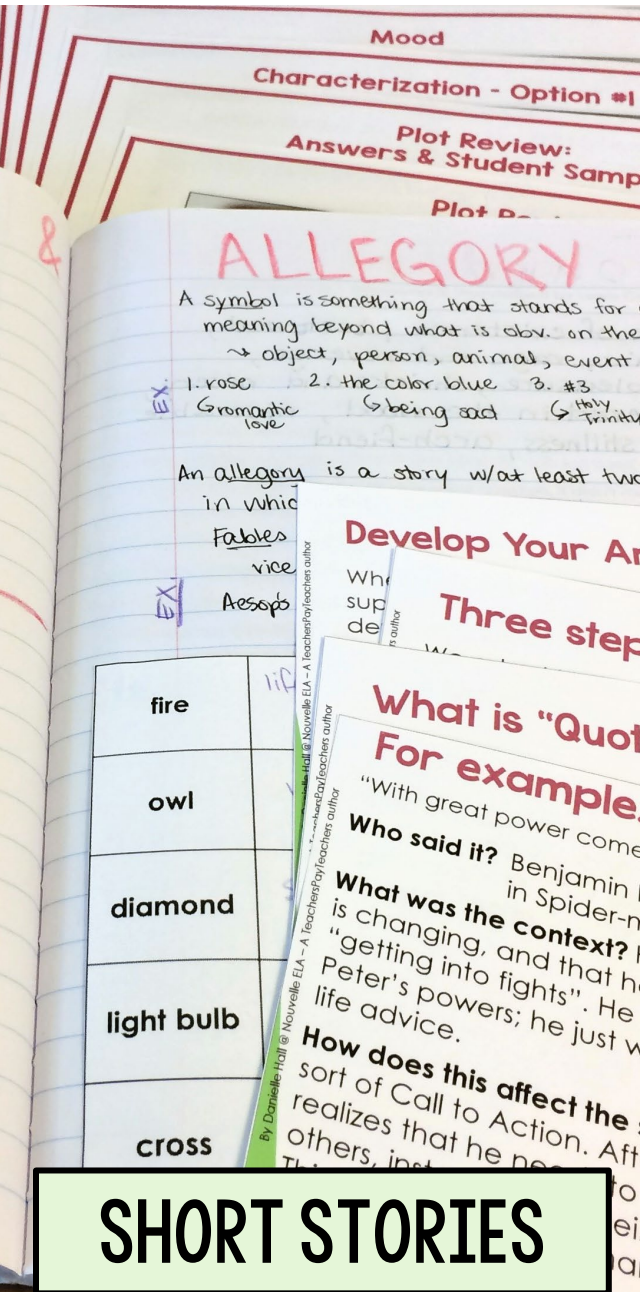 Mood
Characterization - Option #1
Plot Review:
Answers & Student Samp
Plot
&
ALLEGORY
A symbol is something that stands for
meaning beyond what is obv. on the
↳ object, person, animal, event
EX. 1. rose 2. the color blue 3. #3
↳ romantic love ↳ being sad ↳ Holy Trinity
An allegory is a story w/at least two
in whic
Fables
vice
EX. Aesop's
fire
lif
owl
diamond
light bulb
cross
Develop Your A
Whe
sup
de
Three step
What is “Quot
For example
“With great power come
Who said it? Benjamin
in Spider-m
What was the context?
is changing, and that h
“getting into fights”. He
Peter’s powers; he just w
life advice.
How does this affect the
sort of Call to Action. Aft
realizes that he to
others,
By Danielle Hall @ Nouvelle ELA – A TeachersPayTeachers author
Danielle Hall @ Nouvelle ELA – A TeachersPayTeachers author
TeachersPayTeachers author
s author
SHORT STORIES